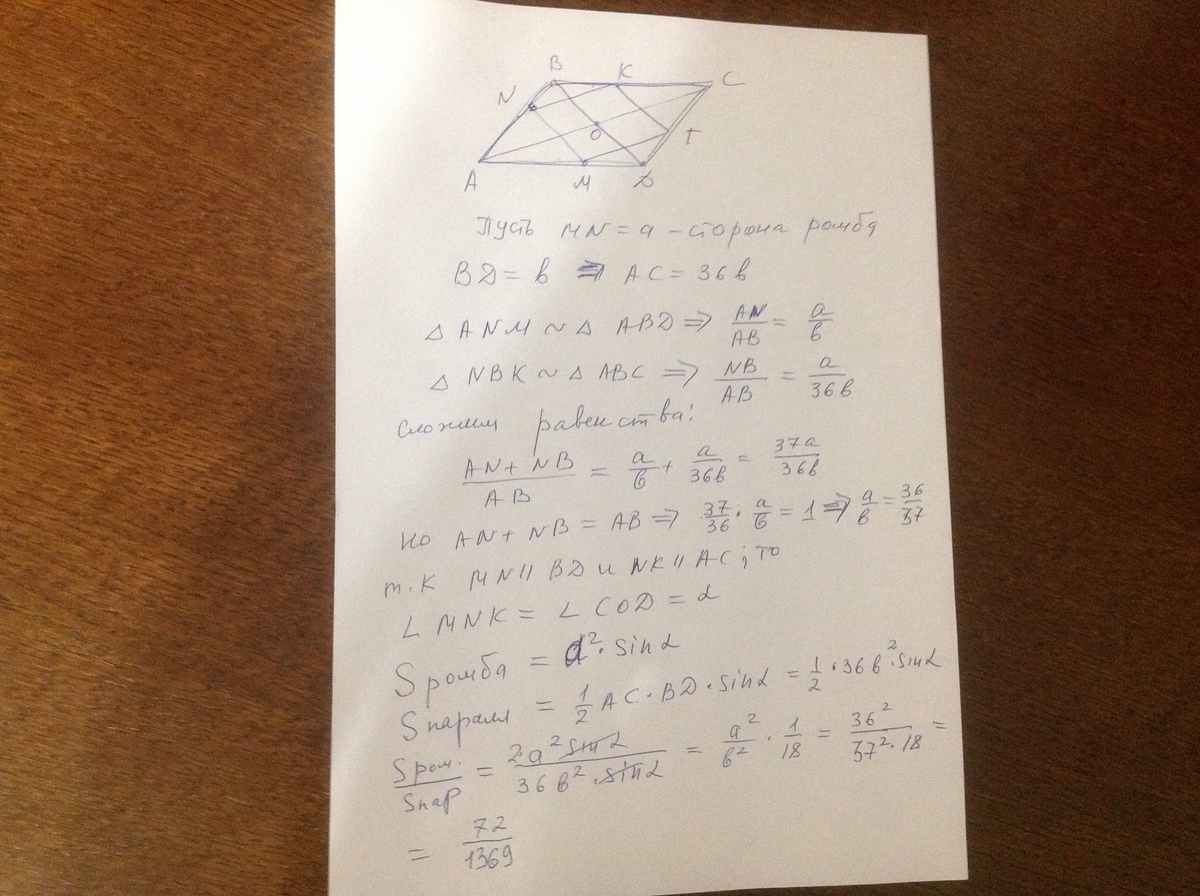 B K C
N
O T
A M D
Пусть MN = a - сторона ромба
BD = b ⇒ AC = 36b
△ ANM ~ △ ABD ⇒ AN/AB = a/b
△ NBK ~ △ ABC ⇒ NB/AB = a/36b
сложим равенства:
(AN + NB)/AB = a/b + a/36b = 37a/36b
но AN + NB = AB ⇒ 37/36 · a/b = 1 ⇒ a/b = 36/37
т.к MN || BD и NK || AC ; то
∠ MNK = ∠ COD = α
S ромба = a² · sin α
S паралл = 1/2 AC · BD · sin α = 1/2 · 36b² · sin α
S ром./S пар = 2·a² sin α/36b² · sin α = a²/b² · 1/18 = 36²/37² · 18 =
= 72/1369